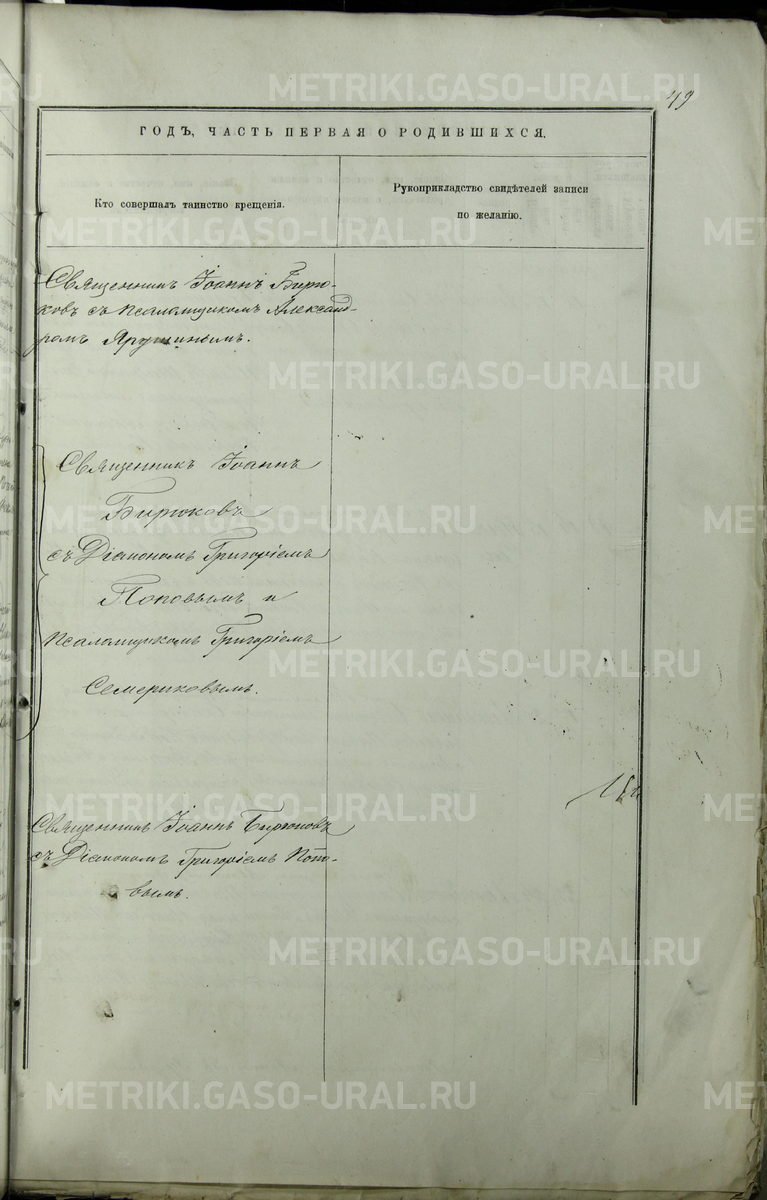 49
ГОДЪ, ЧАСТЬ ПЕРВАЯ О РОДИВШИХСЯ.
Кто совершалъ таинство крещенія.
Рукоприкладство свидѣтелей записи
по желанію.
Священникъ Іоаннъ Бирю-
ковъ съ псаломщикомъ Александ-
ромъ Ярушинымъ.
Священникъ Іоаннъ
Бирюковъ
съ Діакономъ Григоріемъ
Поповымъ и
Псаломщикомъ Григоріемъ
Семериковымъ.
Священникъ Іоаннъ Бирюковъ
съ Діакономъ Григоріемъ Попо-
вымъ.
METRIKI.GASO-URAL.RU